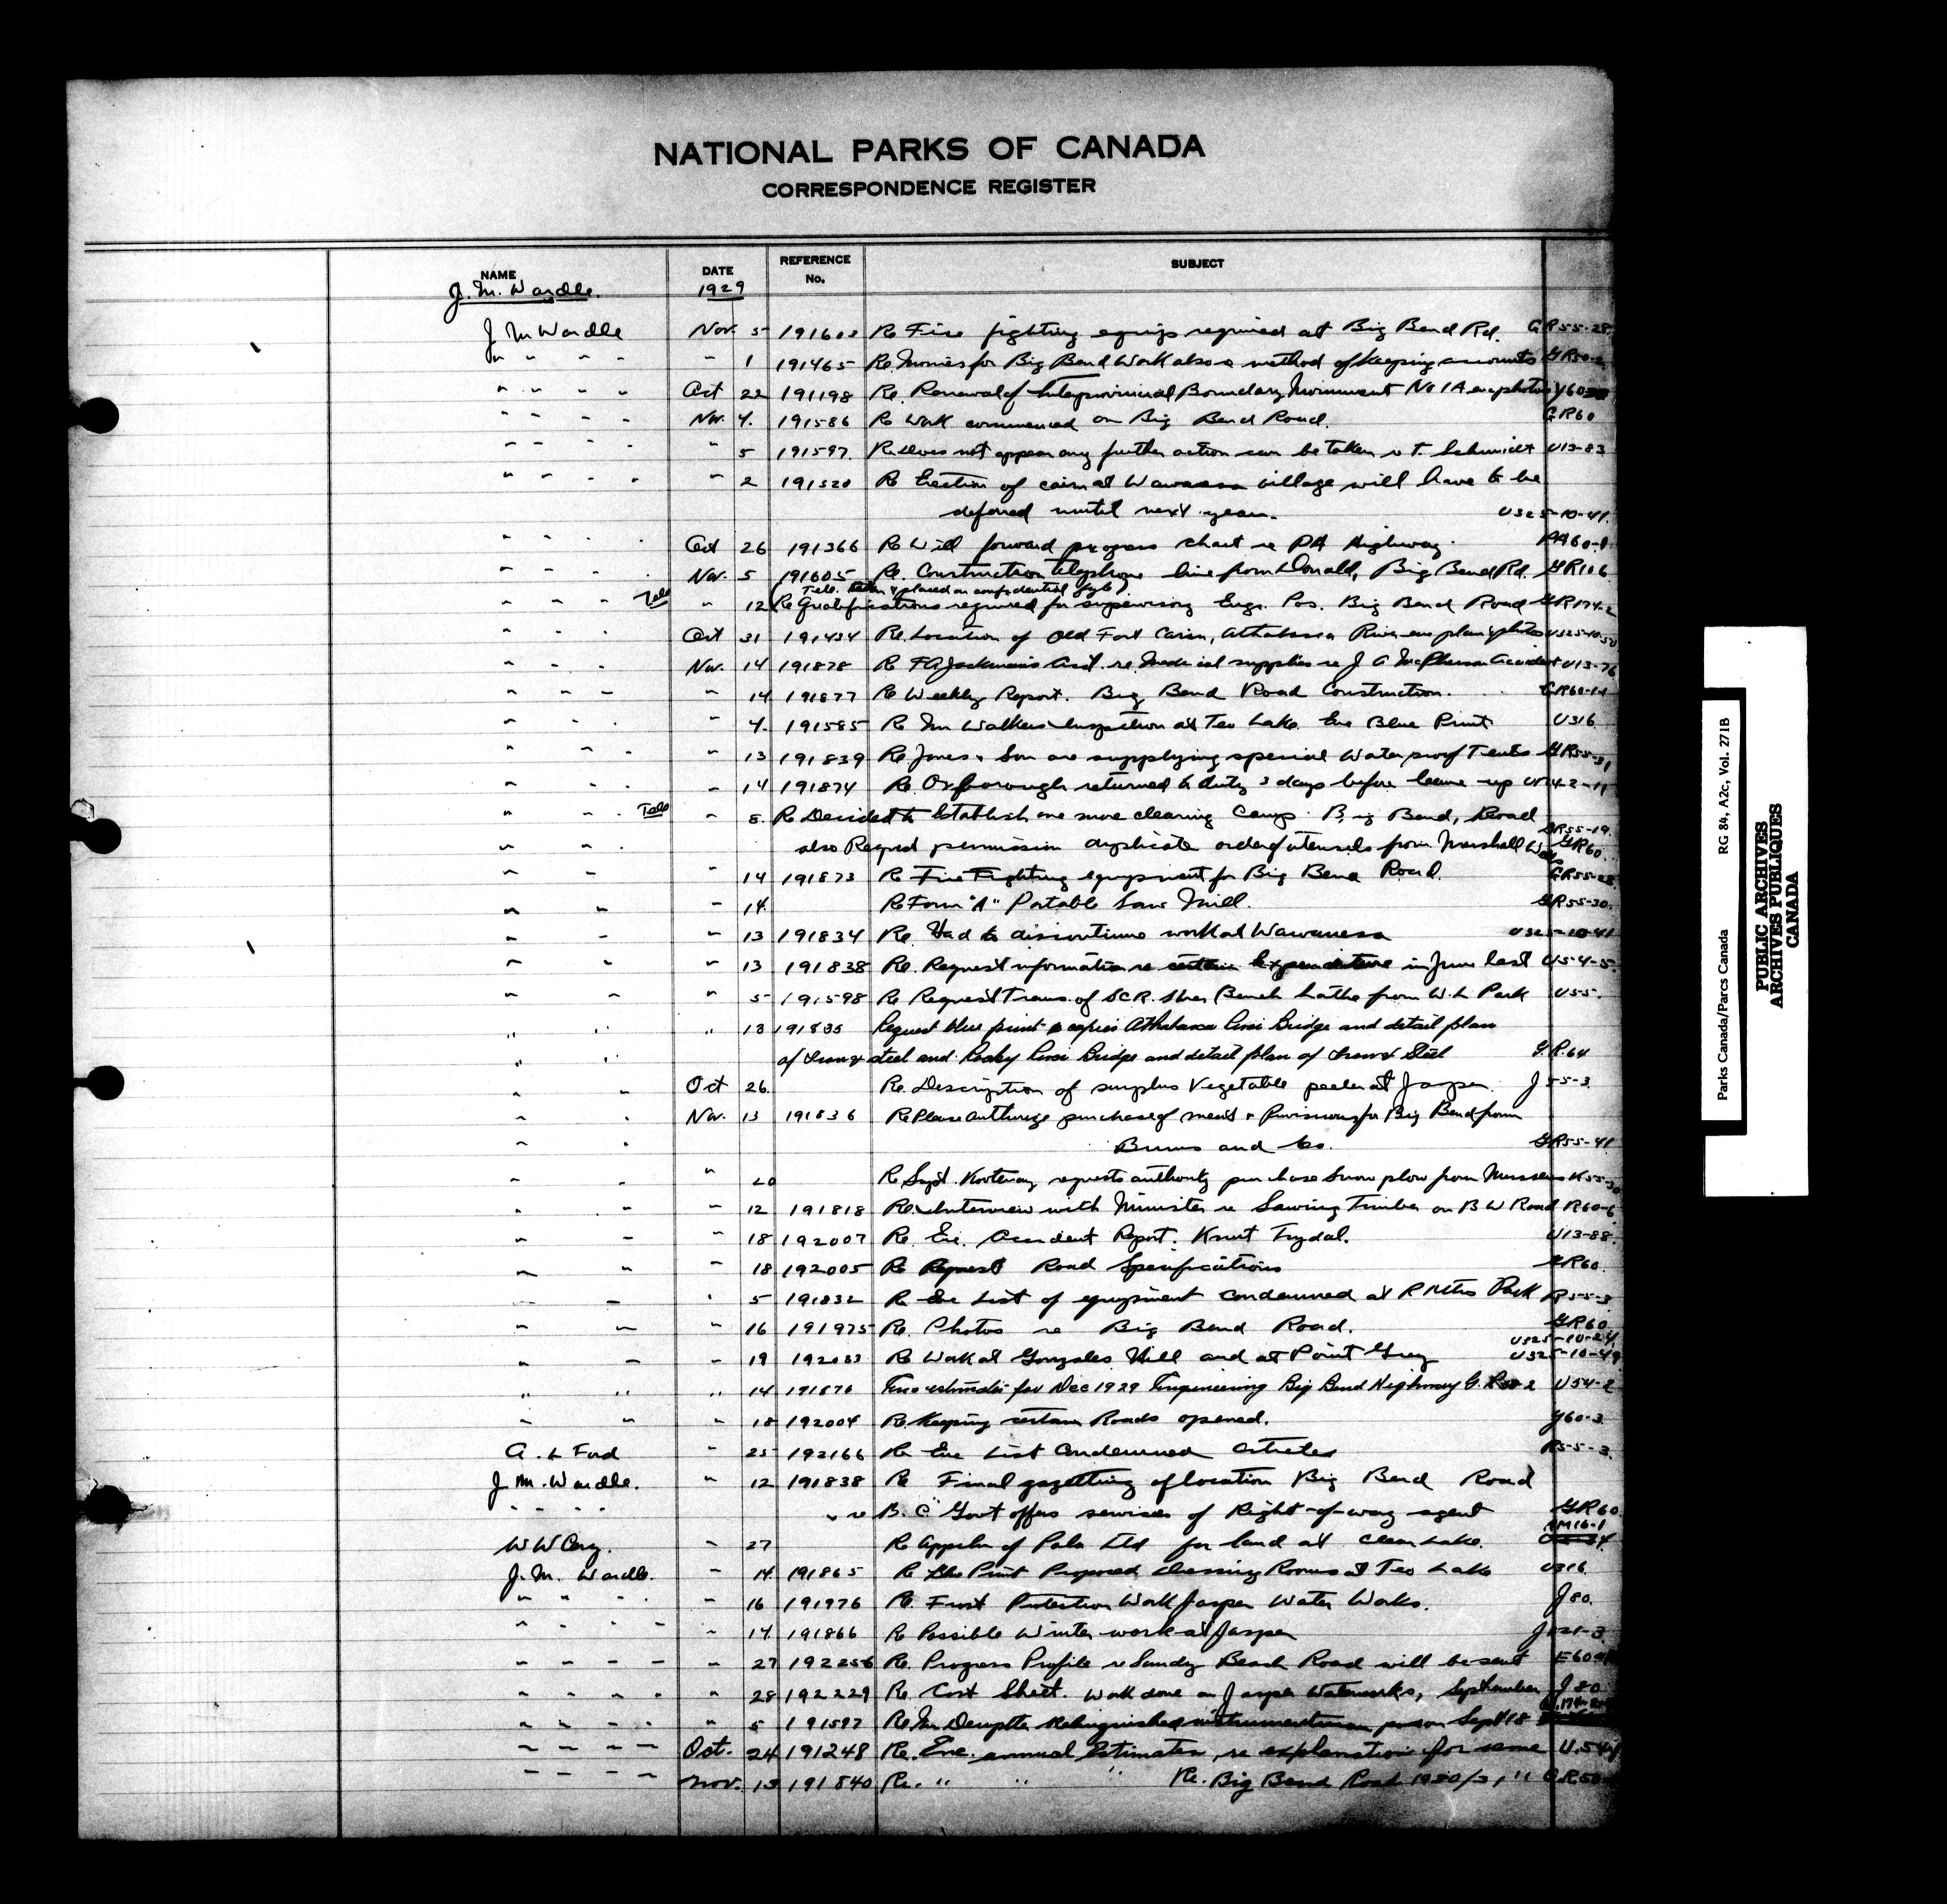 NATIONAL PARKS OF CANADA
CORRESPONDENCE REGISTER
NAME DATE REFERENCE No. SUBJECT
J. M. Wardle. 1929
J M Wardle Nov. 5 191603 Re Fire fighting equip required at Big Bend Rd. GR55-28.
" " " " " 1 191465 Re. Monies for Big Bend Work also method of keeping accounts GR50-2
" " " " Oct 22 191198 Re. Renewal of Interprovincial Boundary Monument No 1A enc photos Y60
" " " " Nov. 4. 191586 Re Work commenced on Big Bend Road. GR60
" " " " " 5 191597. Re does not appear any further action can be taken re T. Schmidt U13-83
" " " " " 2 191520 Re Erection of cairn at Wawanesa village will have to be
deferred until next year. U325-10-41.
" " " Oct 26 191366 Re Will forward progress chart re PA Highway. PA60-1
" " " " Nov. 5 191605 Re. Construction telephone line from Donald, Big Bend Rd. GR106
(Tele. taken & placed on confidential file)
" " " Tele " 12 Re Qualifications required for supervising Engr. Pos. Big Bend Road GR174-2
" " " Oct 31 191434 Re. Location of Old Fort Cairn, Athabasca River enc plan & photos U325-10-50
" " " Nov. 14 191878 Re F A Jackman's Acct. re Medical supplies re J A McPherson Accident U13-76
" " " " 14 191877 Re Weekly Report. Big Bend Road Construction. GR60-14
" " " " 4. 191585 Re Mr Walkers Inspection at Two Lake Enc Blue Print U316
" " " " 13 191839 Re Jones & Son are supplying special Water proof Tents GR55-31
" " " " 14 191874 Re. Oxborough returned to duty 3 days before leave up U174-2-11
" " Tele " 8. Re Decided to Establish one more clearing Camp. Big Bend, Road GR55-19.
" " also Request permission duplicate order of utensils from Marshall Wells GR60.
" " " 14 191873 Re Fire Fighting equipment for Big Bend Road. GR55-28
" " " 14. Re Form "A" Portable Saw Mill. GR55-30.
" " " 13 191834 Re. Had to discontinue work at Wawanesa U325-10-41
" " " 13 191838 Re. Request information re certain Expenditure in June last U5-4-5.
" " " 5 191598 Re Request Trans. of Bench Lathe from W.L Park U55.
" " " 13 191835 Request blue print copies Athabasca River Bridge and detail plan
" " of Iron & steel and Rocky River Bridge and detail plan of Iron & Steel G.R.64
" " Oct 26. Re. Description of surplus Vegetable peeler at Jasper. J 55-3
" " Nov. 13 191836 Re Please authorize purchase of meat & Provisions for Big Bend from
" " Burns and Co. GR55-41
" " " 20 Re Supt. Kootenay requests authority purchase Snow plow from Mussens K55-30
" " " 12 191818 Re. Interview with Minister re Sawing Timber on B W Road R60-6
" " " 18 192007 Re. Enc. Accident Report. Knut Trydal. U13-88.
" " " 18 192005 Re Request Road Specifications GR60.
" " " 5 191832 Re Enc List of equipment condemned at R Mtns Park R55-3
" " " 16 191975 Re. Photos re Big Bend Road. GR60
" " " 19 192033 Re Work at Gonzales Hill and at Point Grey U325-10-24, U325-10-49
" " " 14 191870 Time estimates for Dec 1929 Engineering Big Bend Highway G.R50-2 U54-2
" " " 18 192004 Re Keeping certain Roads opened. Y60-3.
A. L Ford " 25 192166 Re Enc List Condemned Articles R5-5-3.
J. M. Wardle. " 12 191838 Re Final gazetting of location Big Bend Road
" " " " " re B. C. Govt offers services of Right-of-way agent GR60
W W Cory. " 27 Re Appcln of Ltd for land at Clear Lake. RM16-1
J. M. Wardle. " 14. 191865 Re Blue Print Proposed Dressing Rooms at Two Lake U316.
" " " " " 16 191976 Re. Frost Protection Work Jasper Water Works. J80.
" " " " " 14. 191866 Re Possible Winter work at Jasper J121-3.
" " " " " 27 192256 Re. Progress Profile re Sandy Beach Road will be sent E60
" " " " " 28 192229 Re. Cost Sheet. Work done on Jasper Waterworks, September J 80
" " " " " 5 191597 Re Mr relinquished instrumentman position Sept 18
" " " " Oct. 24 191248 Re. Enc. annual Estimates, re explanation for same U.54
" " " " Nov. 13 191840 Re. " " " Re. Big Bend Road 1930/31 " G.R.50
PUBLIC ARCHIVES
ARCHIVES PUBLIQUES
CANADA
Parks Canada/Parcs Canada RG 84, A2c, Vol. 271B